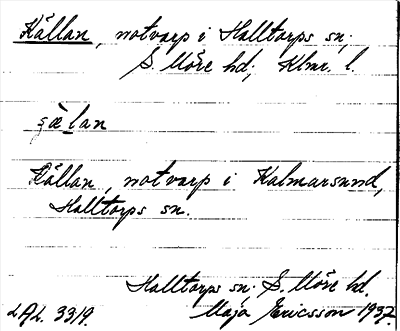 Källan, notvarp i Halltorps sn;
S. Möre hd; Klm. l.
ɕæ̱lan
Källan, notvarp i Kalmarsund,
Halltorps sn.
Halltorps sn. S. Möre hd.
LAL. 3319. Maja Ericsson 1937.